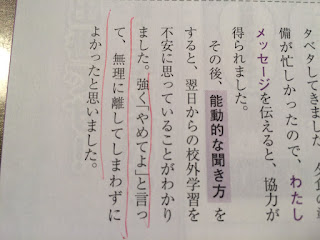 タベタしてきました。夕食の
備が忙しかったので、わたし
メッセージを伝えると、協力が
得られました。
その後、能動的な聞き方を
すると、翌日からの校外学習を
不安に思っていることがわかり
ました。強く「やめてよ」と言っ
て、無理に離してしまわずに
よかったと思いました。